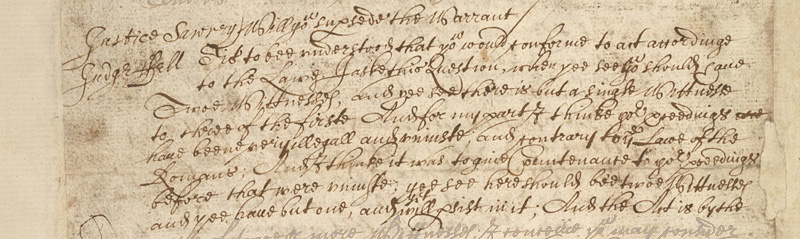 Justice Sawrey Will yor supsede the Warrant
Judge Fell Tis to bee understood that yor would conforme to act accordinge
to the Lawe I aske this Question, when yee see yor should have
Twoe Wittnesses, and yee see there is but a single Wittnesse
to three of the firste And for my part I thinke yor pceedings
have beene very illegall and uniuste, and contrary to ye Lawe of the
Romans; And I thinke it was to give Countenance to yor pceedings
before that were uniuste; yee see here should bee twoe Wittnesses
and yee have but one, and will psist in it; And the Act is by the